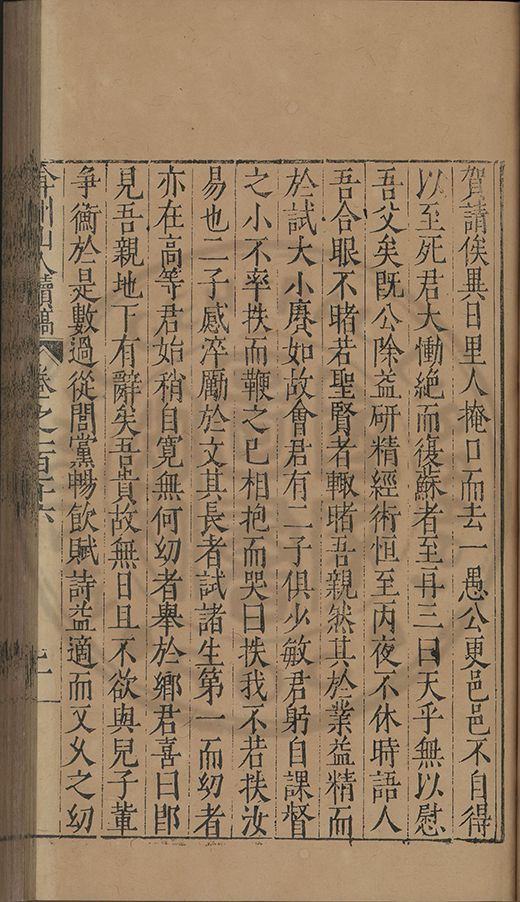 賀請俟異日里人掩口而去一愚公更邑邑不自得
以至死君大慟絕而復蘇者至再三曰天乎無以慰
吾父矣既公除益研精經術恒至丙夜不休時語人
吾合眼不睹若聖賢者輙睹吾親然其於業益精而
於試大小屢如故會君有二子俱少敏君躬自課督
之小不率抶而鞭之已相抱而哭曰抶我不若抶汝
易也二子感淬勵於文其長者試諸生第一而幼者
亦在高等君始稍自寬無何幼者舉於鄉君喜曰即
見吾親地下有辭矣吾貴故無日且不欲與兒子輩
爭衡於是數過從閭黨暢飲賦詩益適而又乆之幼
弇州山人續稿 卷之一百二十六